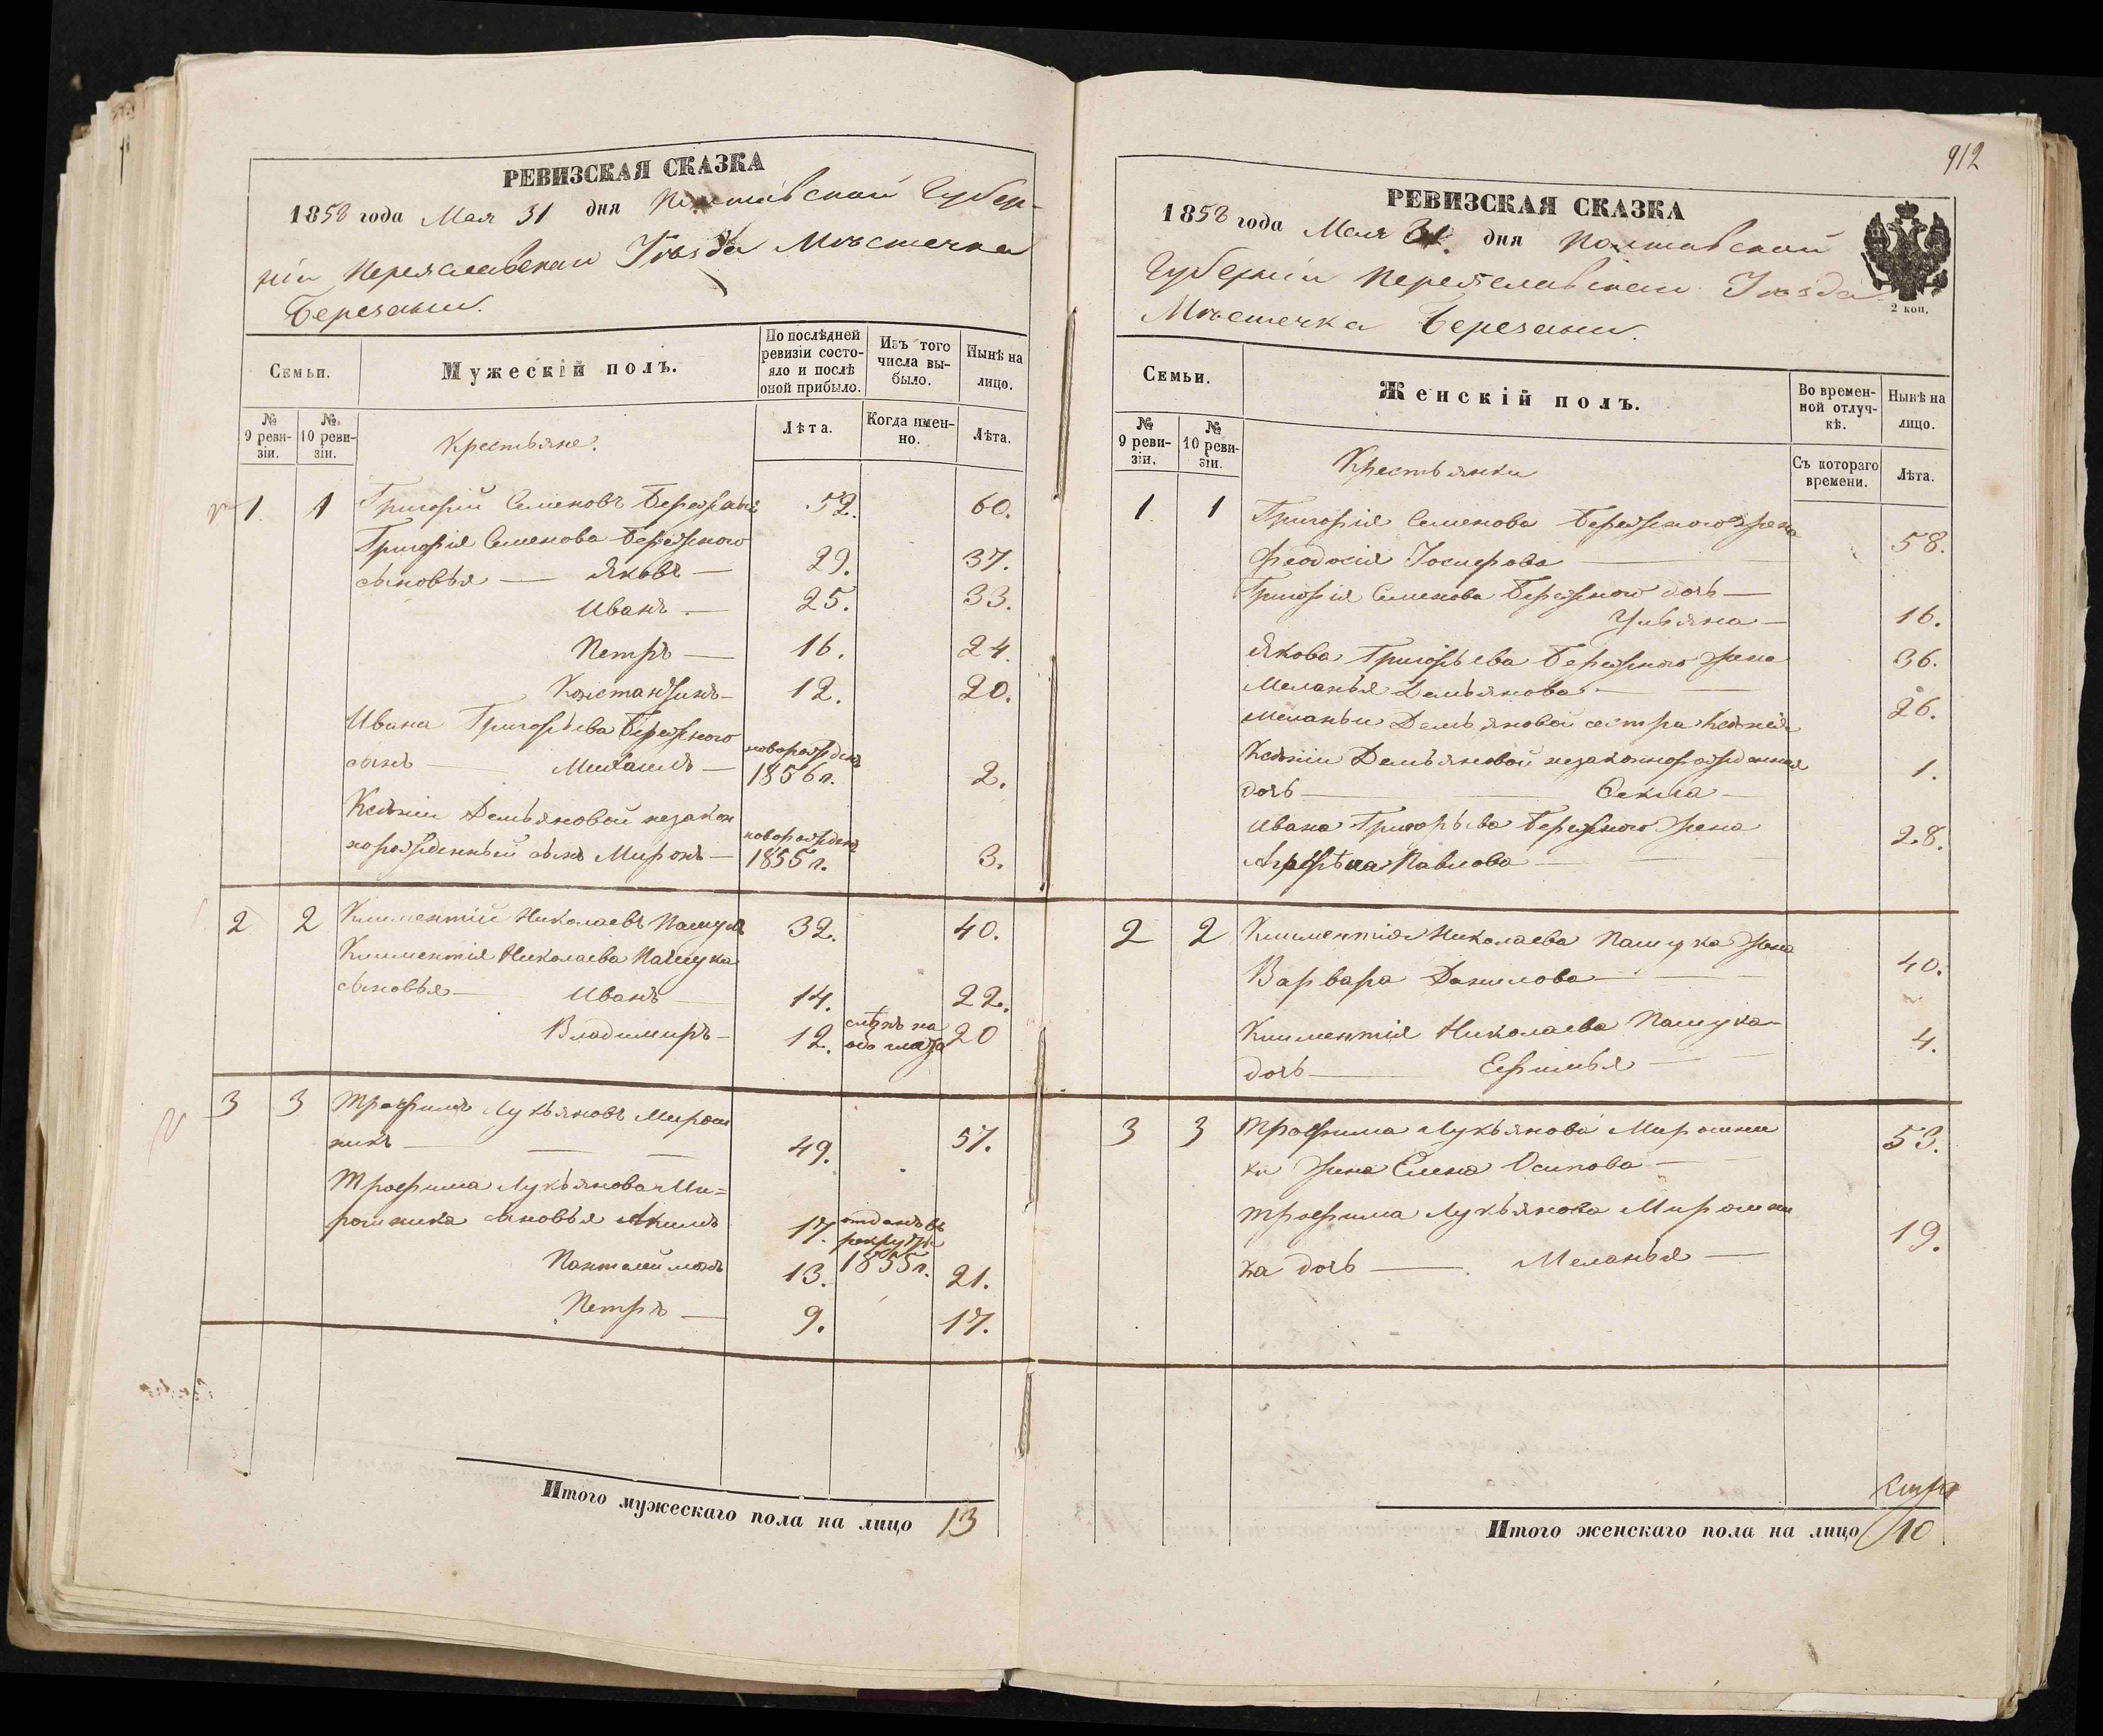 РЕВИЗСКАЯ СКАЗКА
1858 года Мая 31 дня Полтавской Губер-
ніи Переяславскаго Уѣзда Мѣстечка
Березани.
Семьи.
Мужескій полъ.
По послѣдней ревизіи состо-яло и послѣ оной прибыло.
Изъ того числа вы-было.
Нынѣ на лицо.
№ 9 реви-зіи.
№ 10 реви-зіи.
Крестьяне.
Лѣта.
Когда имен-но.
Лѣта.
1 1 Григорій Семеновъ 52. 60.
Григорія Семенова Бережного
сыновья — Яковъ — 29. 37.
Иванъ — 25. 33.
Петръ — 16. 24.
Константинъ — 12. 20.
Ивана Григорьева Бережного
сынъ — Михаилъ — новорожденъ 1856 г. 2.
Ксеніи Демьяновой незакон
норожденный сынъ Миронъ — новорожденъ 1855 г. 3.
2 2 Климентій Николаевъ Пашука 32. 40.
Климентія Николаева Пашука
сыновья — Иванъ — 14. 22.
Владимиръ — 12. слѣпъ на оба глаза 20
3 3 Трофимъ Лукьяновъ Мирош
никъ — — — 49. 57.
Трофима Лукьянова Ми=
рошника сыновья Акимъ 17. отданъ въ рекруты 1855 г.
Пантелеймонъ 13. 21.
Петръ — 9. 17.
Итого мужескаго пола на лицо 13
912
РЕВИЗСКАЯ СКАЗКА
1858 года Мая 31. дня Полтавской
Губерніи Переяславскаго Уѣзда
Мѣстечка Березани.
2 коп.
Семьи.
Женскій полъ.
Во времен-ной отлуч-кѣ.
Нынѣ на лицо.
№ 9 реви-зіи.
№ 10 реви-зіи.
Крестьянки
Съ котораго времени.
Лѣта.
1 1 Григорія Семенова Бережного жена
Феодосія Іосифова — 58.
Григорія Семенова Бережного дочь —
Ульяна — 16.
Якова Григорьева Бережного жена 36.
Меланья Демьянова — —
Меланьи Демьяновой сестра Ксенія 26.
Ксеніи Демьяновой незаконнорожденная
дочь — Фекла — 1.
Ивана Григорьева Бережного жена
Агрефѣна Павлова — — 28.
2 2 Климентія Николаева Пашука жена
Варвара Данилова — — 40.
Климентія Николаева Пашука
дочь — Ефимья — 4.
3 3 Трофима Лукьянова Мирошни
ка жена Елена Осипова — 53.
Трофима Лукьянова Мирошни
ка дочь — Меланья — 19.
Итого женскаго пола на лицо 10